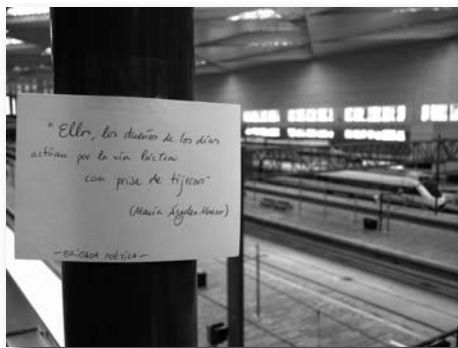 "Ellos, los dueños de los días
actúan por la vía láctea
con prisa de tijeras"
(María Ángeles Maeso)
- BRIGADA POÉTICA -